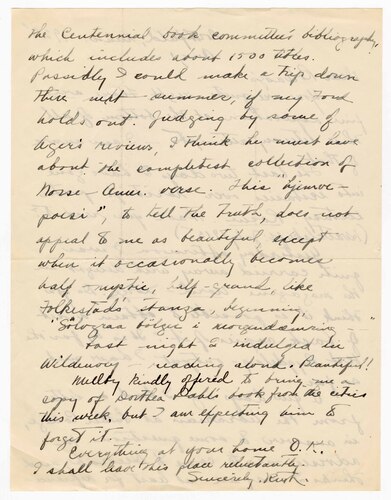 the Centennial book committee's bibliography,
which includes about 1500 titles.
Possibly I could make a trip down
there next summer, if my Ford
holds out. Judging by some of
Ager's reviews, I think he must have
about the completest collection of
Norse-Amer. verse. This "hjemve-
poesi", to tell the truth, does not
appeal to me as beautiful, except
when it occasionally becomes
half-mystic, half-grand, like
Folkestad's stanza, beginning,
"Sölvgraa bölger i morgendæmring—"
Last night I indulged in
Wildenvey reading aloud. Beautiful!
Melby kindly offered to bring me a
copy of Dorthea Dahl's book from the cities
this week, but I am expecting him to
forget it.
Everything at your home O.K.
I shall leave this place reluctantly.
Sincerely,